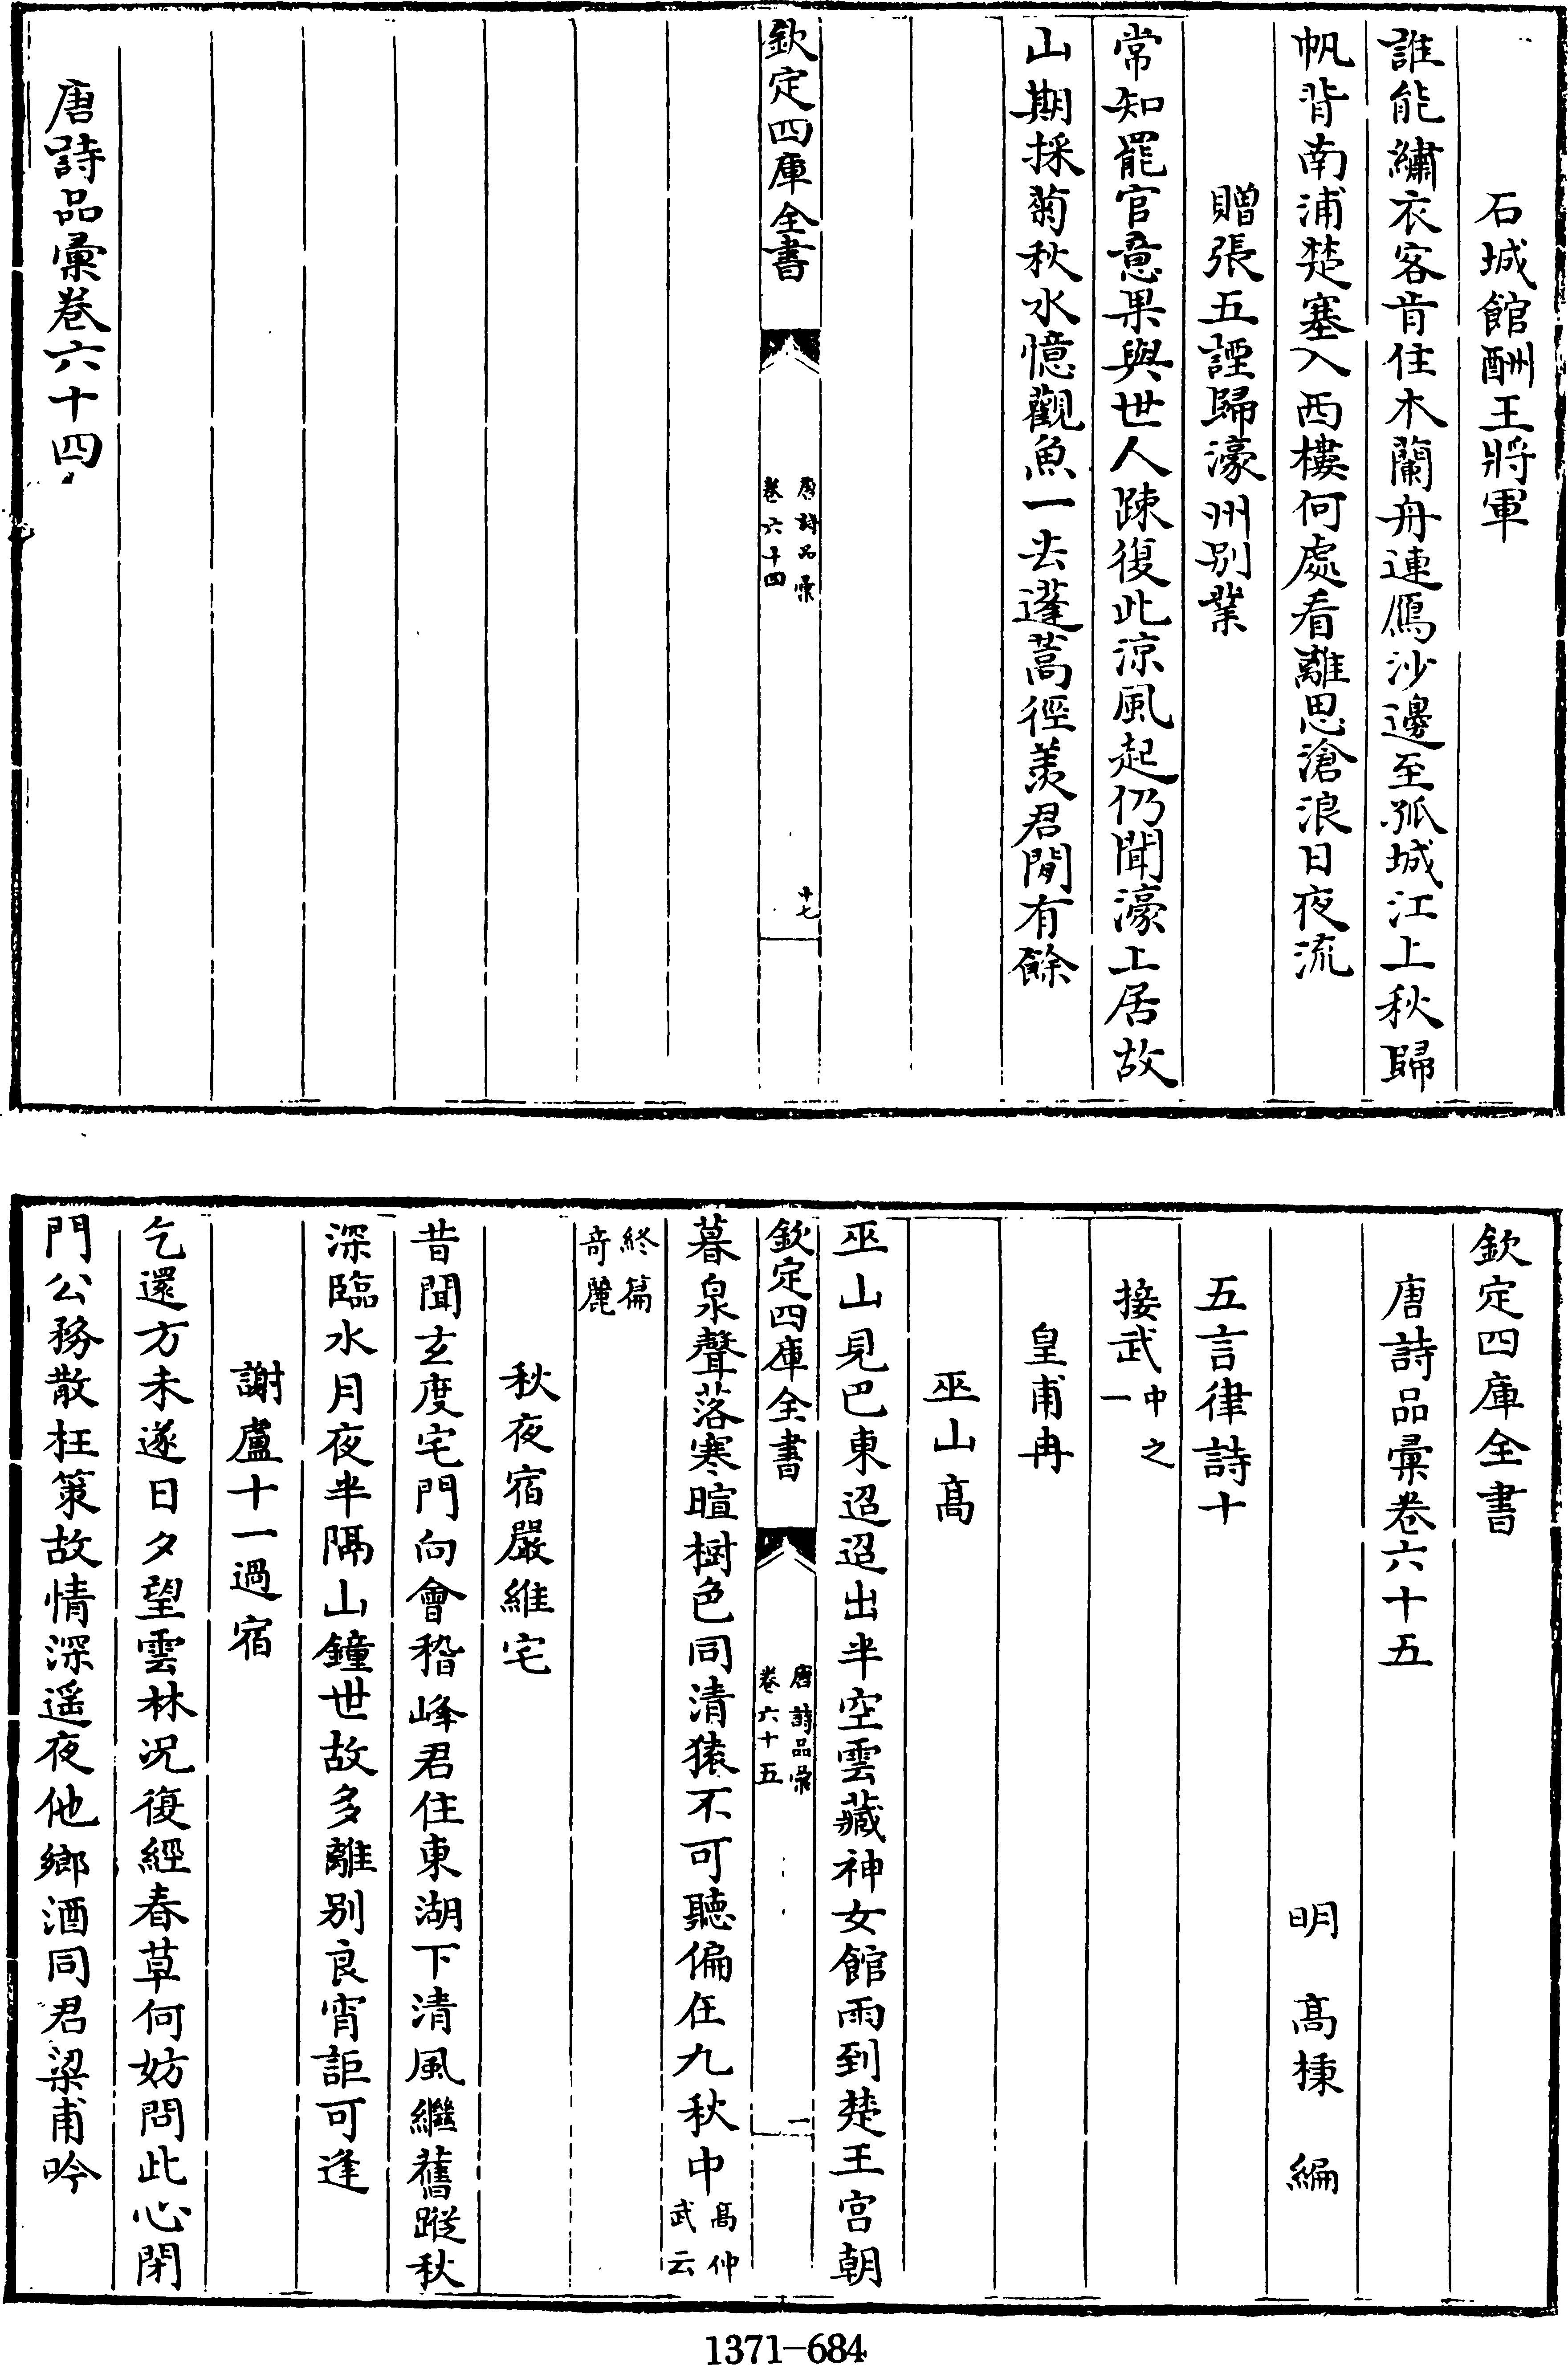 石城館酬王將軍
誰能繡衣客肯住木蘭舟連鴈沙邊至孤城江上秋歸
帆背南浦楚塞入西樓何處看離思滄浪日夜流
贈張五諲歸濠州别業
常知罷官意果與世人踈復此涼風起仍聞濠上居故
山期採菊秋水憶觀魚一去蓬蒿徑羨君閒有餘
欽定四庫全書
唐詩品彙
卷六十四
十七
唐詩品彙卷六十四
欽定四庫全書
唐詩品彙卷六十五
明 高棅 編
五言律詩十
接武中之一
皇甫冉
巫山高
巫山見巴東迢迢出半空雲藏神女館雨到楚王宮朝
欽定四庫全書
唐詩品彙
卷六十五
一
暮泉聲落寒暄樹色同清猿不可聽偏在九秋中高仲武云
終篇奇麗
秋夜宿嚴維宅
昔聞玄度宅門向會稽峰君住東湖下清風繼舊蹤秋
深臨水月夜半隔山鐘世故多離别良宵詎可逢
謝盧十一過宿
乞還方未遂日夕望雲林况復經春草何妨問此心閉
門公務散枉策故情深遥夜他鄉酒同君梁甫吟
1371-684